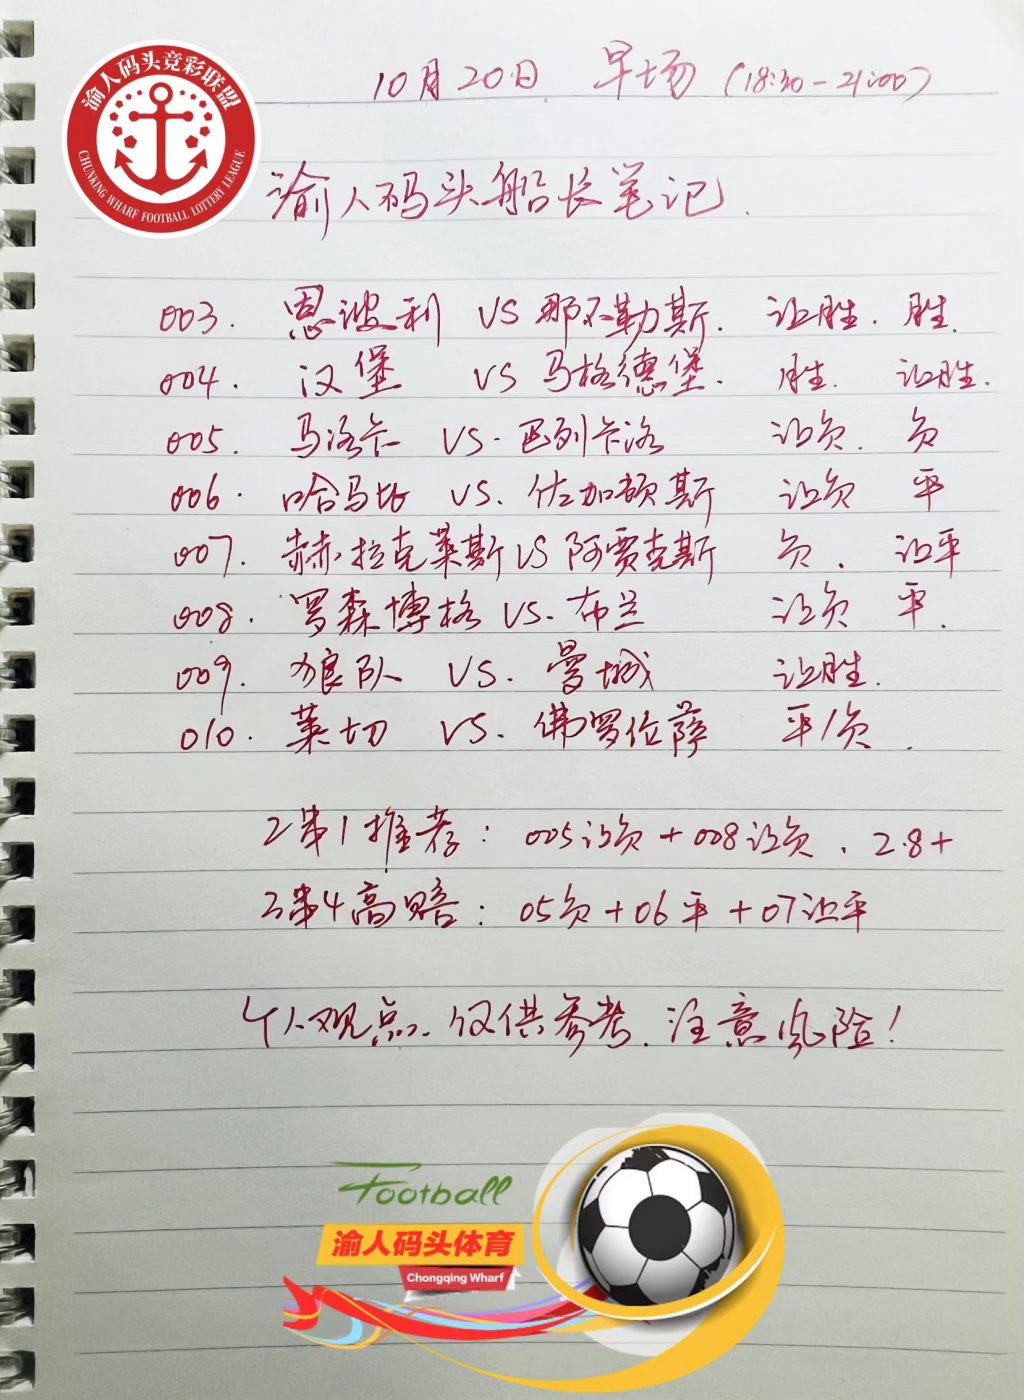 渝人码头竞彩联盟
CHUNKING WHARF FOOTBALL LOTTERY LEAGUE
10月20日 早场 (18:30-21:00)
渝人码头船长笔记.
003. 恩波利 VS 那不勒斯. 让胜. 胜.
004. 汉堡 VS 马格德堡. 胜. 让胜.
005. 马洛卡 VS. 巴列卡洛 让负. 负
006. 哈马比 VS. 佐加顿斯 让负 平
007. 赫拉克莱斯 VS 阿贾克斯 负. 让平
008. 罗森博格 VS. 布兰 让负 平.
009. 狼队 VS. 曼城 让胜.
010. 莱切 VS. 佛罗伦萨 平/负.
2串1推荐: 005让负+008让负. 2.8+
3串4高赔: 05负+06平+07让平
个人观点. 仅供参考. 注意风险!
Football
渝人码头体育
Chongqing Wharf